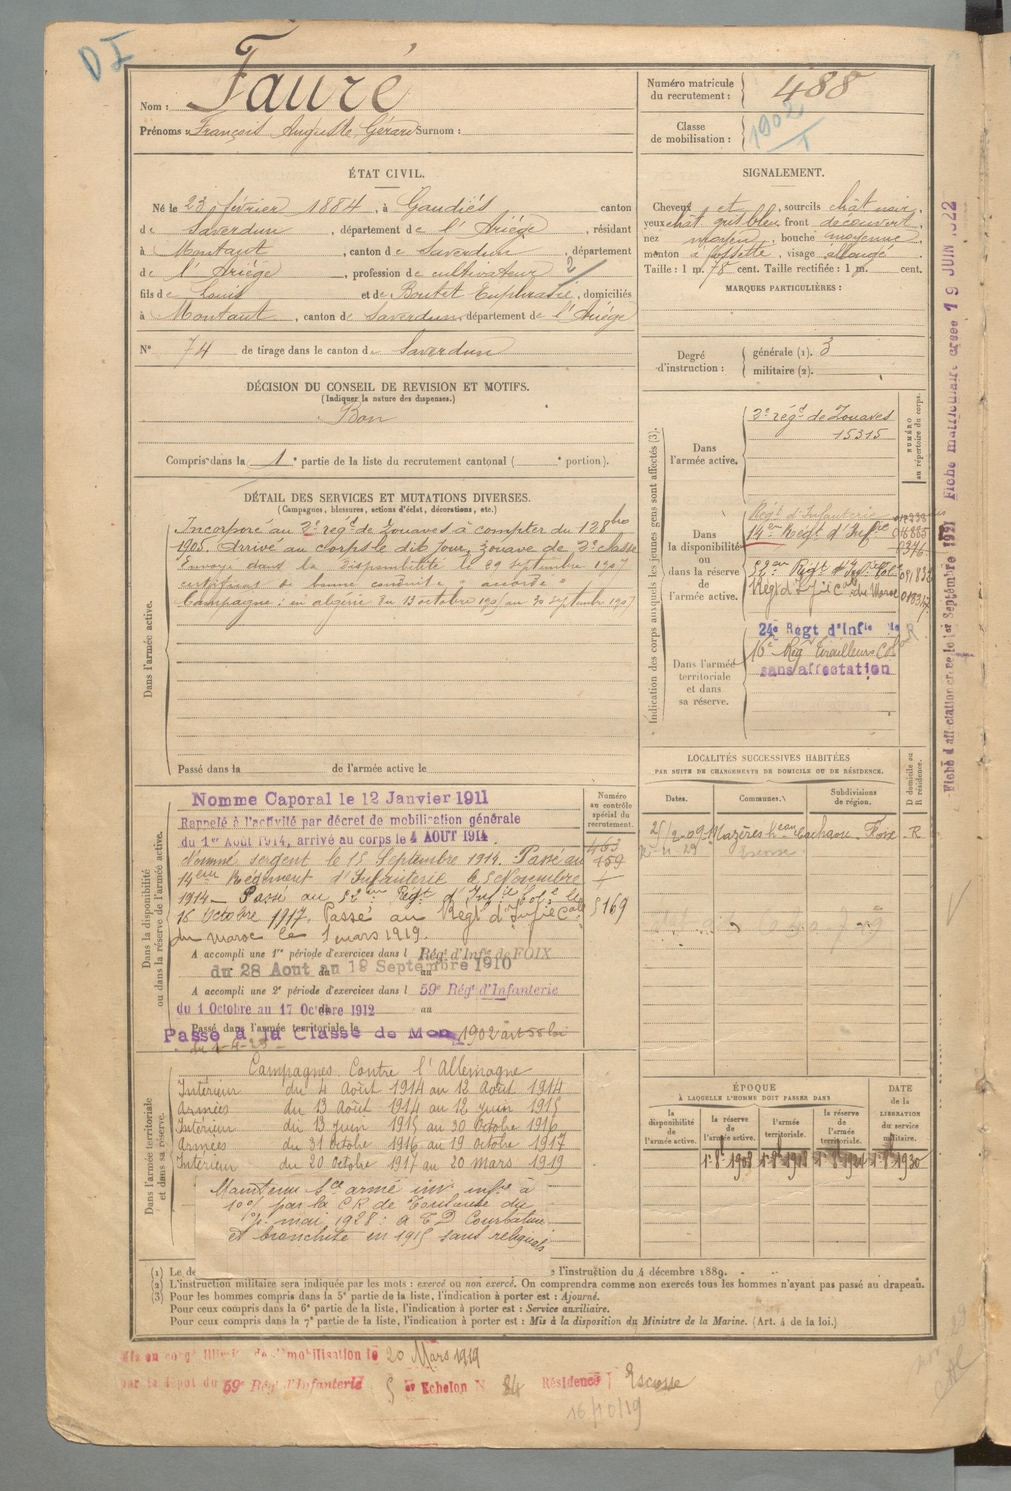 D I
Nom : Fauré
Prénoms : François Auguste Gérard Surnom :
Numéro matricule du recrutement : 488
Classe de mobilisation : 1902
ÉTAT CIVIL.
Né le 23 février 1884, à Gaudiés canton
de Saverdun, département de l'Ariége, résidant
à Montaut, canton de Saverdun, département
de l'Ariége, profession de cultivateur 2
fils de Louis et de Boutet Euphrasie, domiciliés
à Montaut, canton de Saverdun, département de l'Ariége
N° 74 de tirage dans le canton de Saverdun
SIGNALEMENT.
Cheveux et, sourcils chât noir,
yeux chât gris bleu, front découvert,
nez moyen, bouche moyenne,
menton à fossette, visage allongé
Taille : 1 m. 78 cent. Taille rectifiée : 1 m. cent.
MARQUES PARTICULIÈRES :
Degré d'instruction :
générale (1). 3
militaire (2).
DÉCISION DU CONSEIL DE REVISION ET MOTIFS.
(Indiquer la nature des dispenses.)
Bon
Compris dans la 1e partie de la liste du recrutement cantonal ( e portion).
DÉTAIL DES SERVICES ET MUTATIONS DIVERSES.
(Campagnes, blessures, actions d'éclat, décorations, etc.)
Dans l'armée active.
Incorporé au 3e régt de Zouaves à compter du 13 8bre
1905. Arrivé au corps le dit jour, zouave de 2e classe
Envoyé dans la disponibilité le 29 septembre 1907
certificat de bonne conduite "accordé"
Campagne : en algérie du 13 octobre 1905 au 30 septembre 1907
Passé dans la de l'armée active le
Indication des corps auxquels les jeunes gens sont affectés (3).
NUMÉRO au répertoire du corps.
Dans l'armée active.
3e régt de Zouaves
15315
Dans la disponibilité ou dans la réserve de l'armée active.
Régt d'Infanterie
14e Régt d'Infrie
52e Régt d'Infie Colle
Régt d'Infie Cale du Maroc
Dans l'armée territoriale et dans sa réserve.
24e Régt d'Infie
16e Rég Tirailleurs Col
sans affectation
Fiche d'affectation créée le 1er Septembre 1921
Fiche matriculaire créée 19 JUIN 1922
Dans la disponibilité ou dans la réserve de l'armée active.
Numéro au contrôle spécial du recrutement.
Nommé Caporal le 12 Janvier 1911
Rappelé à l'activité par décret de mobilisation générale
du 1er Août 1914, arrivé au corps le 4 AOUT 1914
Nommé sergent le 15 Septembre 1914. Passé au
14ème Régiment d'Infanterie le 5 Novembre
1914 — Passé au 52ème Régt d'Infie Cole le
16 Octobre 1917. Passé au Régt d'Infie Cale
du maroc le 1 mars 1919.
5169
A accompli une 1re période d'exercices dans l Régt d'Infie de FOIX
du 28 Aout au 19 Septembre 1910
A accompli une 2e période d'exercices dans l 59e Régt d'Infanterie
du 1 Octobre au 17 Octobre 1912
Passé dans l'armée territoriale le
Passé à la Classe de Mob 1902 art 58 loi
LOCALITÉS SUCCESSIVES HABITÉES
PAR SUITE DE CHANGEMENTS DE DOMICILE OU DE RÉSIDENCE.
Dates. Communes. Subdivisions de région. D domicile ou R résidence.
Mazères R
Escosse
Dans l'armée territoriale et dans sa réserve.
Campagnes Contre l'Allemagne
Intérieur du 4 Août 1914 au 12 Août 1914
Armées du 13 Août 1914 au 12 juin 1915
Intérieur du 13 juin 1915 au 30 Octobre 1916
Armées du 31 Octobre 1916 au 19 Octobre 1917
Intérieur du 20 Octobre 1917 au 20 mars 1919
Maintenu Sce armé inv. infre à
10% par la CR de Toulouse du
mai 1928 : à T D Courbature
et bronchite en 1915 sans reliquats
ÉPOQUE
À LAQUELLE L'HOMME DOIT PASSER DANS
DATE de la LIBÉRATION du service militaire.
la disponibilité de l'armée active. la réserve de l'armée active. l'armée territoriale. la réserve de l'armée territoriale.
(1) Le de l'instruction du 4 décembre 1889.
(2) L'instruction militaire sera indiquée par les mots : exercé ou non exercé. On comprendra comme non exercés tous les hommes n'ayant pas passé au drapeau.
(3) Pour les hommes compris dans la 5e partie de la liste, l'indication à porter est : Ajourné.
Pour ceux compris dans la 6e partie de la liste, l'indication à porter est : Service auxiliaire.
Pour ceux compris dans la 7e partie de la liste, l'indication à porter est : Mis à la disposition du Ministre de la Marine. (Art. 4 de la loi.)
Mis en congé illimité de démobilisation le 20 Mars 1919
par le dépôt du 59e Rég. d'Infanterie 5 e Echelon N° 84 Résidence Escosse
16/10/19